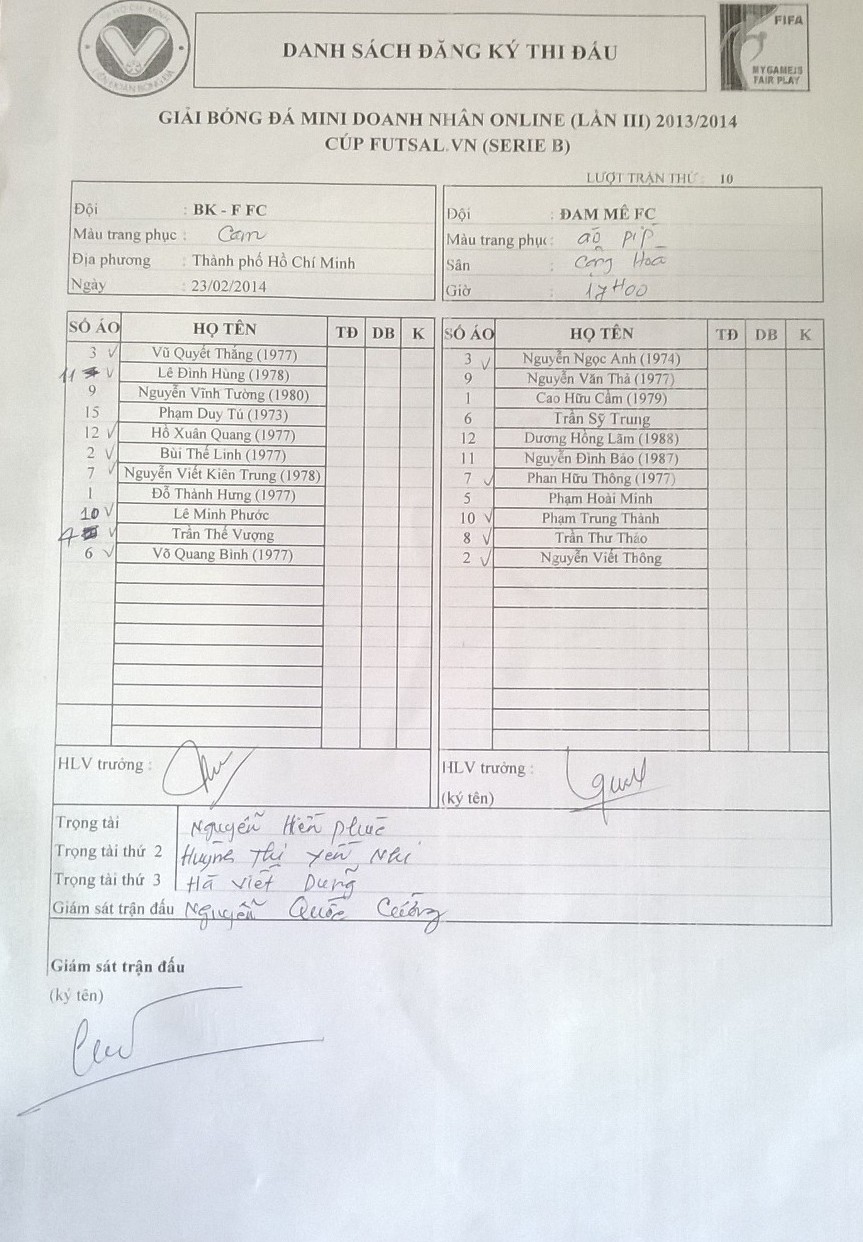 DANH SÁCH ĐĂNG KÝ THI ĐẤU
FIFA
MY GAME IS
FAIR PLAY
GIẢI BÓNG ĐÁ MINI DOANH NHÂN ONLINE (LẦN III) 2013/2014
CÚP FUTSAL.VN (SERIE B)
LƯỢT TRẬN THỨ : 10
Đội : BK - F FC
Màu trang phục : Cam
Địa phương : Thành phố Hồ Chí Minh
Ngày : 23/02/2014
Đội : ĐAM MÊ FC
Màu trang phục : áo
Sân : Cộng Hoà
Giờ : 17H00
SỐ ÁO HỌ TÊN TĐ DB K
3 ✓ Vũ Quyết Thắng (1977)
11 ✓ Lê Đình Hùng (1978)
9 Nguyễn Vĩnh Tường (1980)
15 Phạm Duy Tú (1973)
12 ✓ Hồ Xuân Quang (1977)
2 ✓ Bùi Thế Linh (1977)
7 ✓ Nguyễn Viết Kiên Trung (1978)
1 Đỗ Thành Hưng (1977)
10 ✓ Lê Minh Phước
4 ✓ Trần Thế Vượng
6 ✓ Võ Quang Bình (1977)
SỐ ÁO HỌ TÊN TĐ DB K
3 ✓ Nguyễn Ngọc Anh (1974)
9 Nguyễn Văn Thả (1977)
1 Cao Hữu Cầm (1979)
6 Trần Sỹ Trung
12 Dương Hồng Lãm (1988)
11 Nguyễn Đình Bảo (1987)
7 ✓ Phan Hữu Thông (1977)
5 Phạm Hoài Minh
10 ✓ Phạm Trung Thành
8 ✓ Trần Thư Thảo
2 ✓ Nguyễn Viết Thông
HLV trưởng :
HLV trưởng :
(ký tên)
Trọng tài Nguyễn Hiền Phúc
Trọng tài thứ 2 Huỳnh Thị Yến Nhi
Trọng tài thứ 3 Hà Viết Dũng
Giám sát trận đấu Nguyễn Quốc Cường
Giám sát trận đấu
(ký tên)